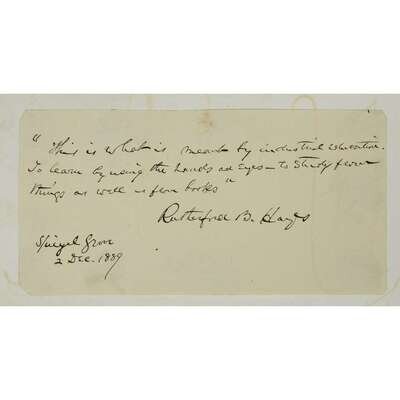 "This is what is meant by industrial education.
To learn by using the hands and eyes — to study from
things as well as from books"
Rutherford B. Hayes
Spiegel Grove
2 Dec. 1889